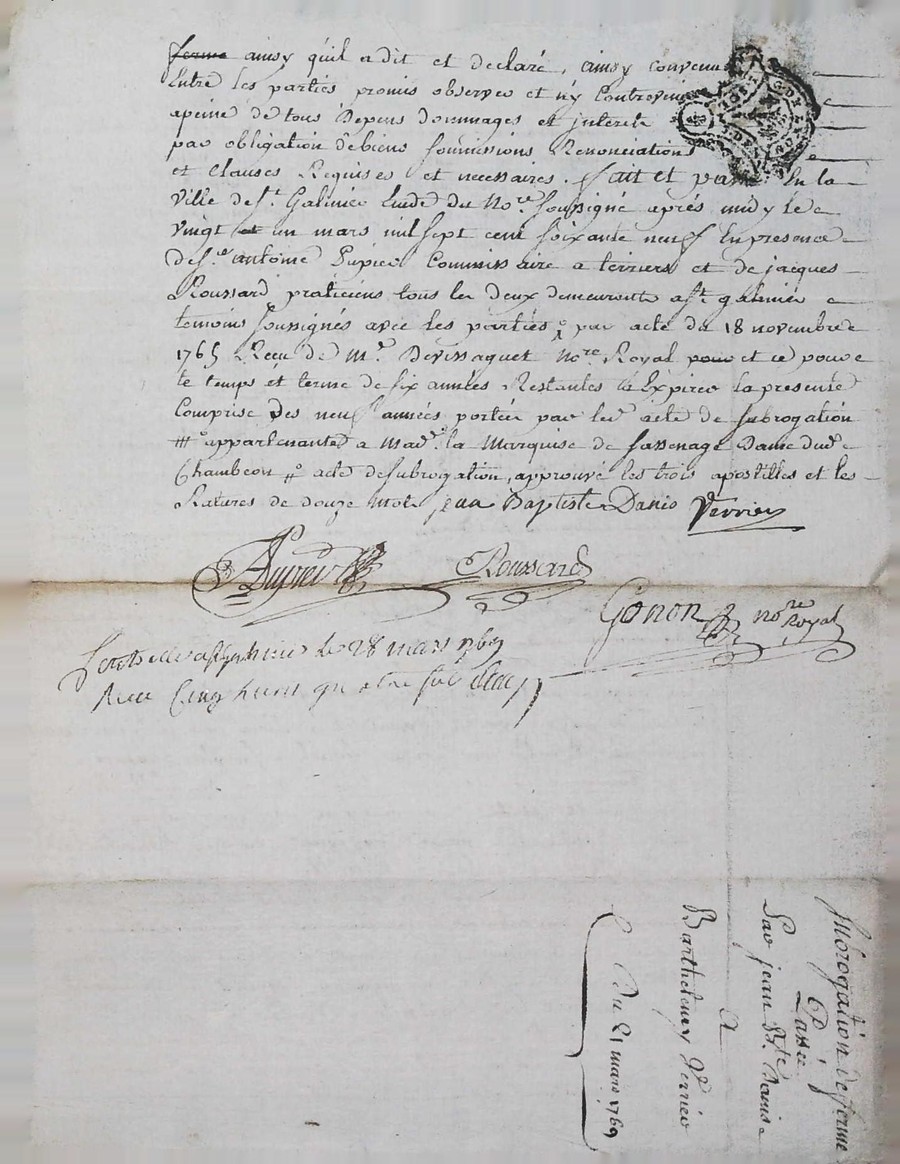 ferme ainsy qu'il a dit et declaré, ainsy convenu
Entre les parties promis observer et n'y Contrevenir
apeine de tous Depens dommages et jnterets
par obligation de biens soumissions Renonciations
et Clauses Requises et necessaires. fait et passé En la
Ville de St. Galmier Etude du Nore. soussigné aprés midy le
vingt et un mars mil sept cent soixante neuf En presence
de Sr. antoine Pupier Commissaire a terriers et de jacques
Roussard praticiens tous les deux demeurants a St. galmier
temoins soussignés avec les parties, par acte du 18 novembre
1765 Recu de Me. Devissaguet Nore. Royal pour et ce pour
le temps et terme de six années Restantes à Expirer la presente
Comprise Des neuf années portées par led. acte de subrogation
# appartenante a Made. la Marquise de Sassenage Dame dud.
Chambeon # acte de subrogation, approuvé les trois apostilles et les
Ratures de douze mots jean Baptiste Danis Verrier
Pupier Roussard
Gonon nore Royal
a St. galmier le 28 mars 1769
Recu Cinq livres quatre sols
Subrogation de ferme
Passée
Par jean Bte. Danis
A
Barthelemy Verrier
Du 21 mars 1769